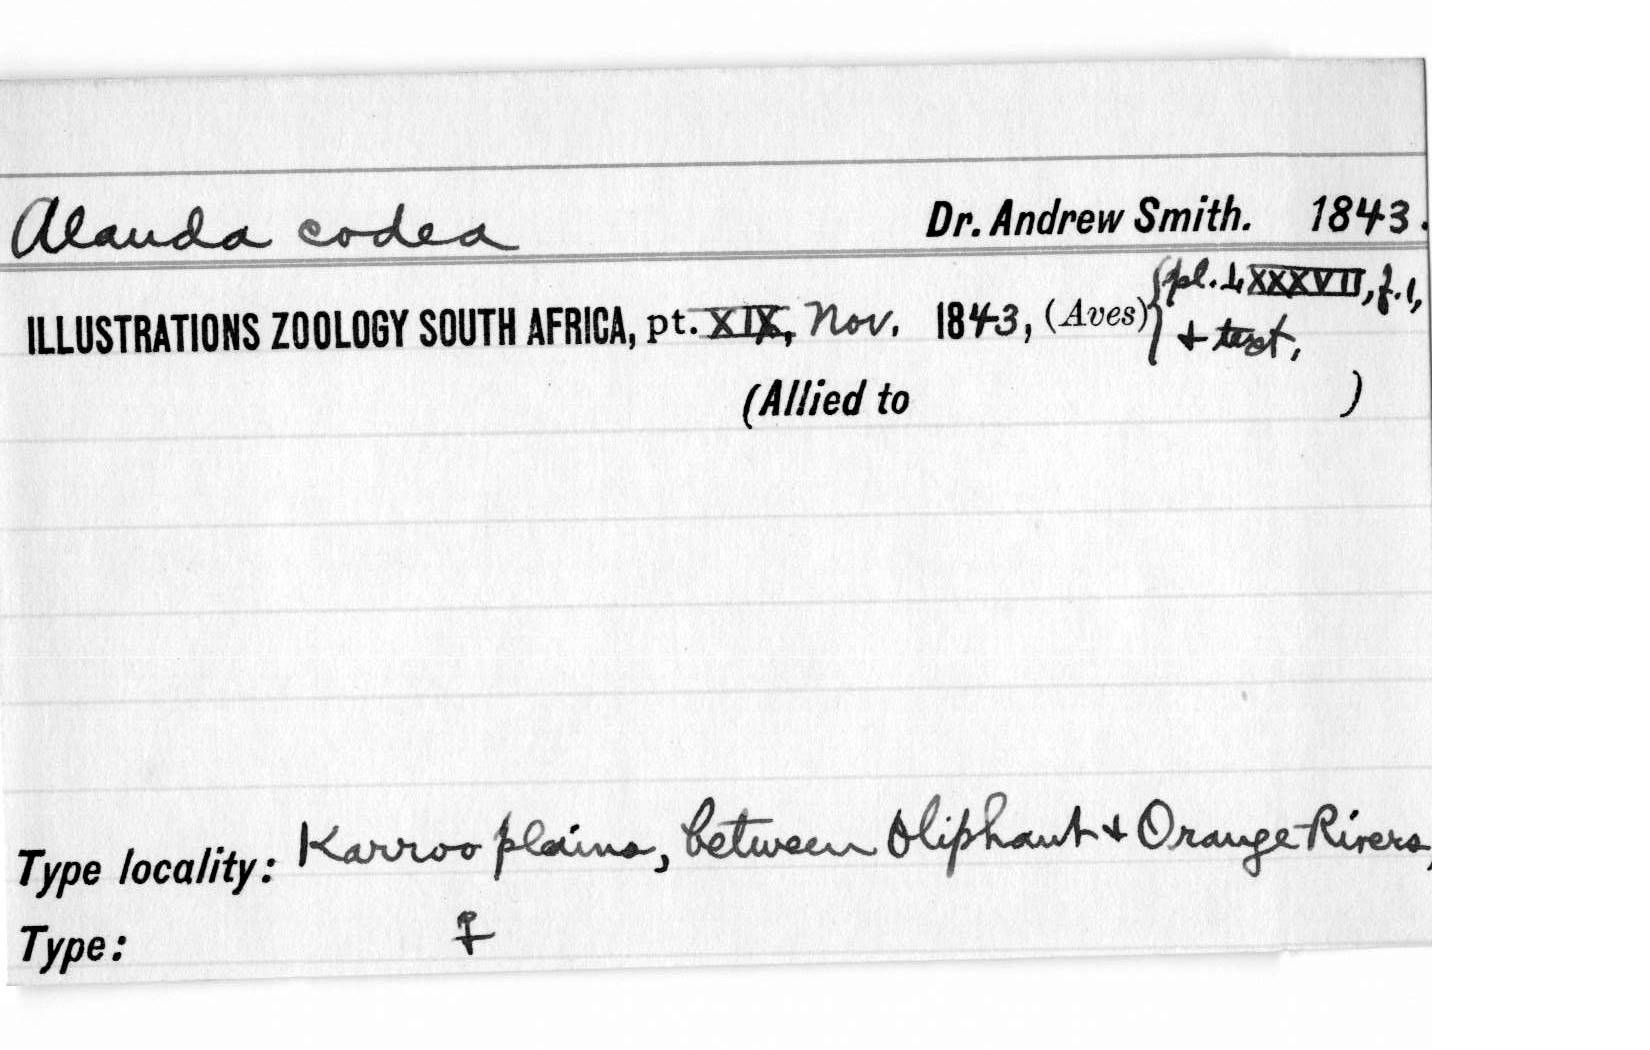 Alauda codea Dr. Andrew Smith. 1843.
ILLUSTRATIONS ZOOLOGY SOUTH AFRICA, pt. XIX, Nov. 1843, (Aves) { pl. LXXXVII, f. 1,
+ text,
(Allied to )
Type locality: Karroo plains, between Oliphant + Orange Rivers,
Type: ♀